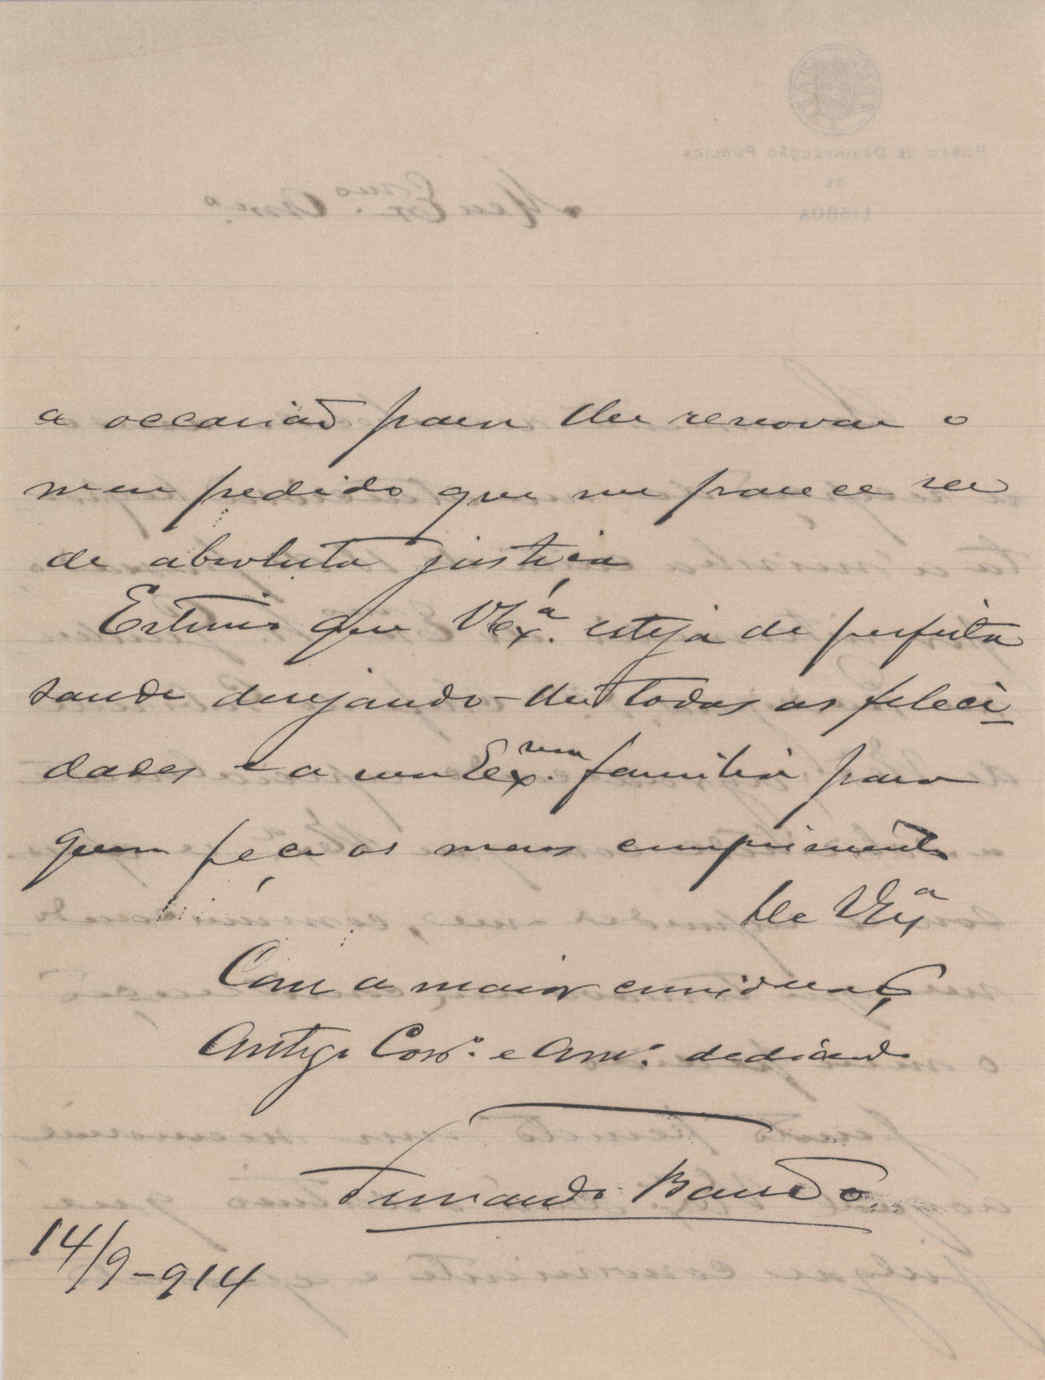 a occasião para lhe renovar o
meu pedido que me parece ser
de absoluta justiça
Estimo que V Ex.ª esteja de perfeita
saude desejando-lhe todas as feleci-
dades e a sua Ex.ma familia para
quem peço os meus cumprimentos
De V Exª
Com a maior consideração
Antigo Corr.º e Am.º dedicado
Fernando
14/9-914